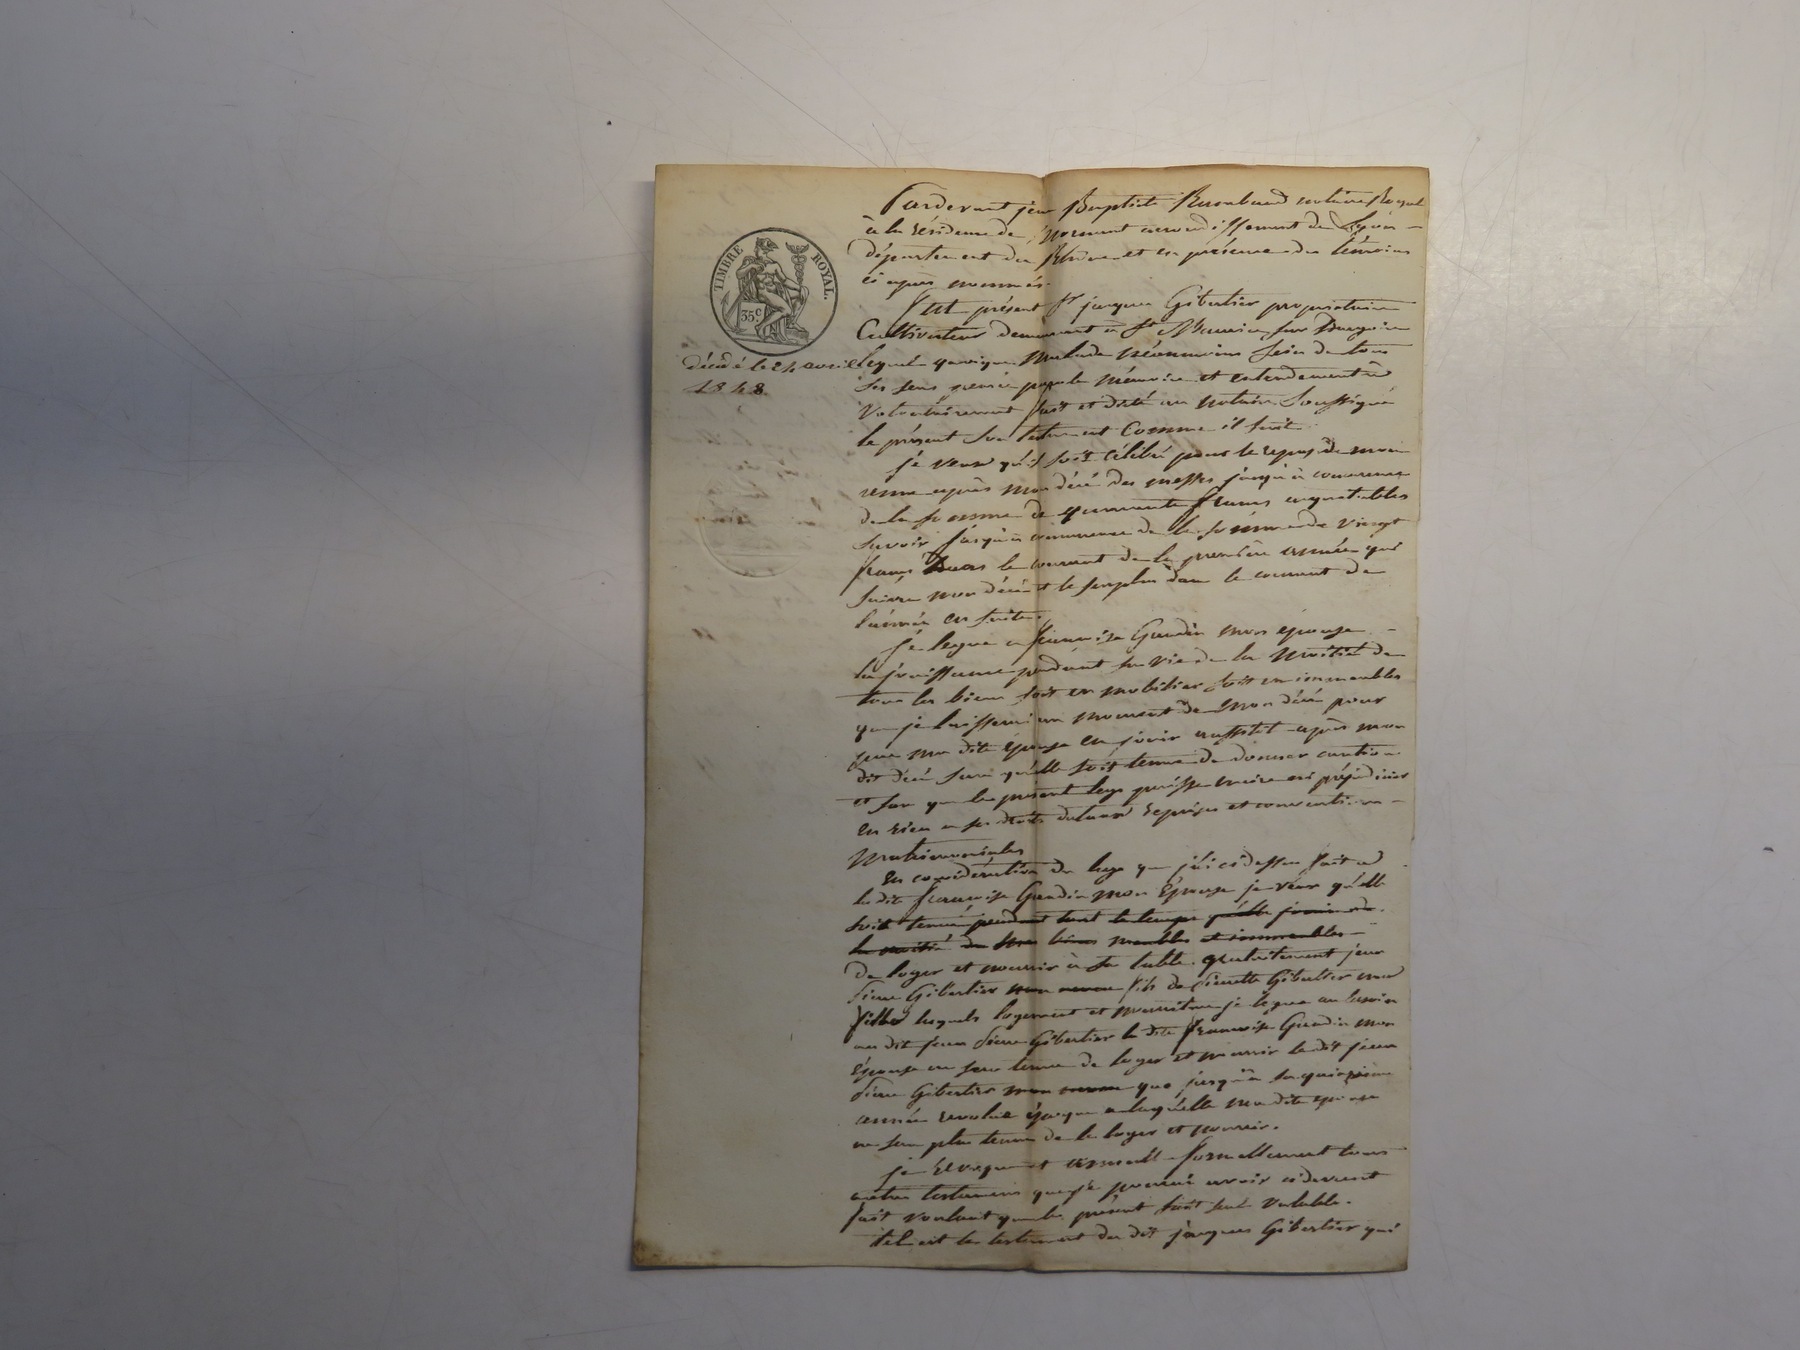 TIMBRE ROYAL.
35c
décédé le 24 avril
1848
Pardevant jean Baptiste Rambaud notaire Royal
à la résidence de Mornant arrondissement de Lyon
département du Rhône et en présence des témoins
ci après nommés.
fut présent Sr jacques Gibertier propriétaire
Cultivateur demeurant à St Maurice sur Dargoire
lequel quoique Malade néanmoins sain de tous
ses sens mémoire et entendement a
Volontairement fait et dicté au notaire Soussigné
le présent son testament Comme il suit.
je veux qu'il soit célébré pour le repos de mon
ame après mon décè des messes jusqu'à concurrence
de la somme de quarante francs acquittables
savoir jusqu'à concurrence de la somme de vingt
francs dans le courant de la première année qui
suivra mon décè et le surplus dans le courant de
l'année en suite.
Je legue a françoise Gaudin mon épouse
la jouissance pendant sa vie de la Moitié de
tous les biens soit en mobilier soit en immeubles
que je laisserai au moment de Mon décè pour
que ma dite épouse en jouir aussitot après mon
dit décè sans qu'elle soit tenue de donner caution
et san que le present legs puisse nuire ni préjudicier
en rien a ses droits reprises et conventions
Matrimoniales
En considération du legs que j'ai cidessu fait a
la dite françoise Gaudin mon Epouse je veux qu'elle
soit tenue pendant tout le temps qu'elle jouira de
la moitié de mes biens meubles et immeubles
de loger et nourrir à sa table gratuitement jean
Pierre Gibertier mon neveu fils de Pierrette Gibertier ma
fille lesquels logement et nourriture je lègue au besoin
au dit jean Pierre Gibertier la dite françoise Gaudin mon
Epouse ne sera tenue de loger et nourrir le dit jean
Pierre Gibertier mon neveu que jusqu'à sa quinzième
année revolue époque a laquelle ma dite epouse
ne sera plus tenue de le loger et nourrir.
je révoque et annulle formellement tous
autres testamens que je pourrai avoir cidevant
fait voulant que le présent soit seul valable.
tel est le testament du dit jacques Gibertier qui